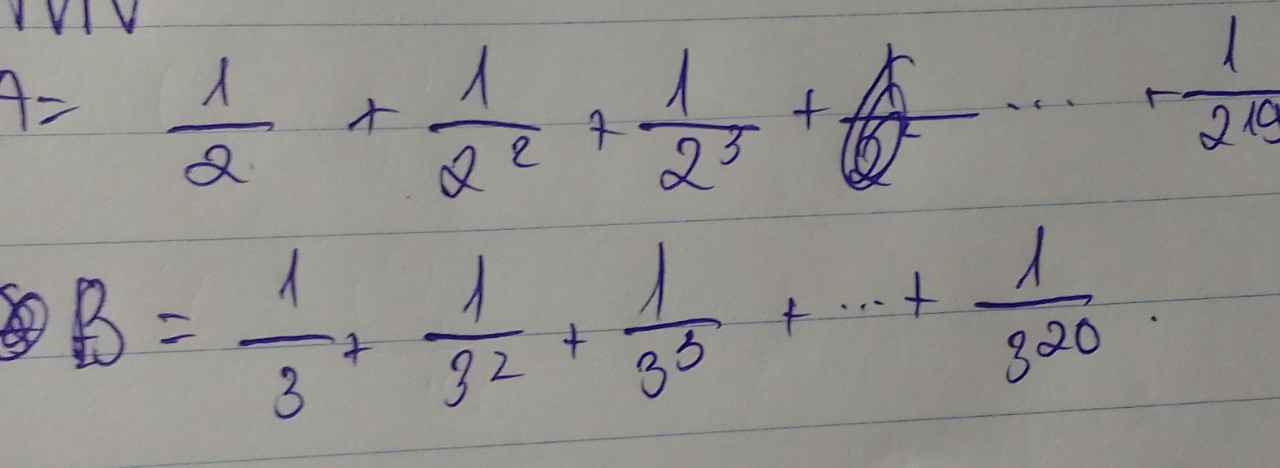 A = 1/2 + 1/2² + 1/2³ + ... + 1/2¹⁹
B = 1/3 + 1/3² + 1/3³ + ... + 1/3²⁰.